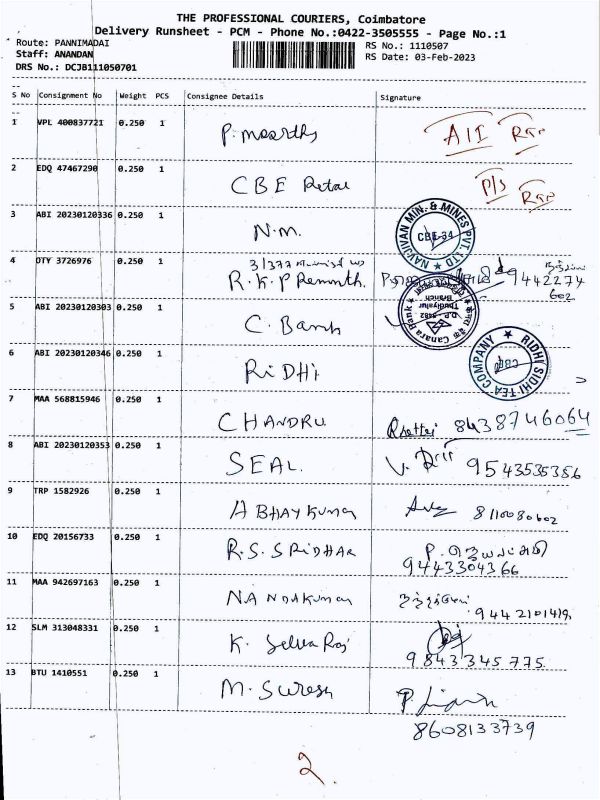 THE PROFESSIONAL COURIERS, Coimbatore
Delivery Runsheet - PCM - Phone No.:0422-3505555 - Page No.:1
Route: PANNIMADAI RS No.: 1110507
Staff: ANANDAN RS Date: 03-Feb-2023
DRS No.: DCJB111050701
S No Consignment No Weight PCS Consignee Details Signature
1 VPL 400837721 0.250 1
2 EDQ 47467290 0.250 1 CBE Retai P/S
3 ABI 20230120336 0.250 1 N.M.
NAVJIVAN MIN. & MINES PVT. LTD ★ CBE-34
4 DTY 3726976 0.250 1 R.K.P 9442274
602
5 ABI 20230120303 0.250 1 C. Bank
Canara Bank Thudiyalur Branch D.P. 8482
6 ABI 20230120346 0.250 1 RIDHI
★ RIDHI SIDHI TEA COMPANY
7 MAA 568815946 0.250 1 CHANDRU 8438746064
8 ABI 20230120353 0.250 1 SEAL. 9543535386
9 TRP 1582926 0.250 1 ABHAY Kumar 8110080602
10 EDQ 20156733 0.250 1 R.S. SRIDHAR
9443304366
11 MAA 942697163 0.250 1 NANDAKUMAR
12 SLM 313048331 0.250 1 K. Selva Raj
9843345775
13 BTU 1410551 0.250 1 M. Suresh
8608133739
2